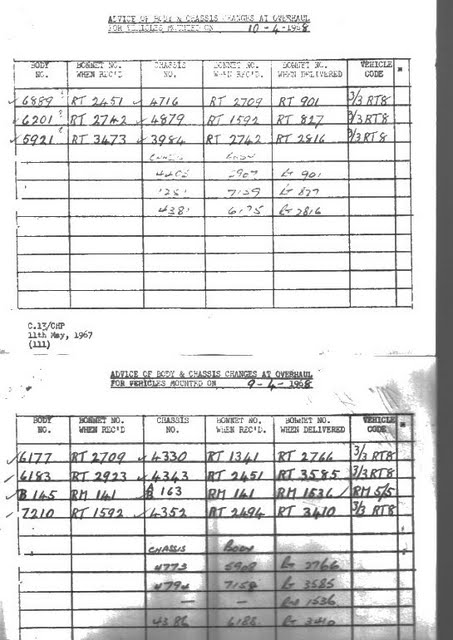 ADVICE OF BODY & CHASSIS CHANGES AT OVERHAUL
FOR VEHICLES MOUNTED ON 10-4-1968
BODY NO. BONNET NO. WHEN REC'D. CHASSIS NO. BONNET NO. WHEN REC'D. BONNET NO. WHEN DELIVERED VEHICLE CODE *
✓ 6889 RT 2451 ✓ 4716 RT 2709 RT 901 3/3 RT8
✓ 6201 RT 2742 ✓ 4879 RT 1592 RT 827 3/3 RT8
✓ 5921 RT 3473 ✓ 3984 RT 2742 RT 2816 3/3 RT8
CHASSIS BODY
Rt 901
7139 Rt 827
4381 6175 Rt 2816
C.13/CHP
11th May, 1967
(111)
ADVICE OF BODY & CHASSIS CHANGES AT OVERHAUL
FOR VEHICLES MOUNTED ON 9-4-1968
BODY NO. BONNET NO. WHEN REC'D CHASSIS NO. BONNET NO. WHEN REC'D. BONNET NO. WHEN DELIVERED VEHICLE CODE *
✓ 6177 RT 2709 ✓ 4330 RT 1341 RT 2766 3/3 RT8
✓ 6183 RT 2923 ✓ 4343 RT 2451 RT 3585 3/3 RT8
✓ B 145 RM 141 B 163 RM 141 RM 1536 RM 5/5
✓ 7210 RT 1592 ✓ 4352 RT 2494 RT 3410 3/3 RT8
CHASSIS BODY
4773 5908 Rt 2766
4794 7158 Rt 3585
— — Rm 1536
4386 6188 Rt 3410